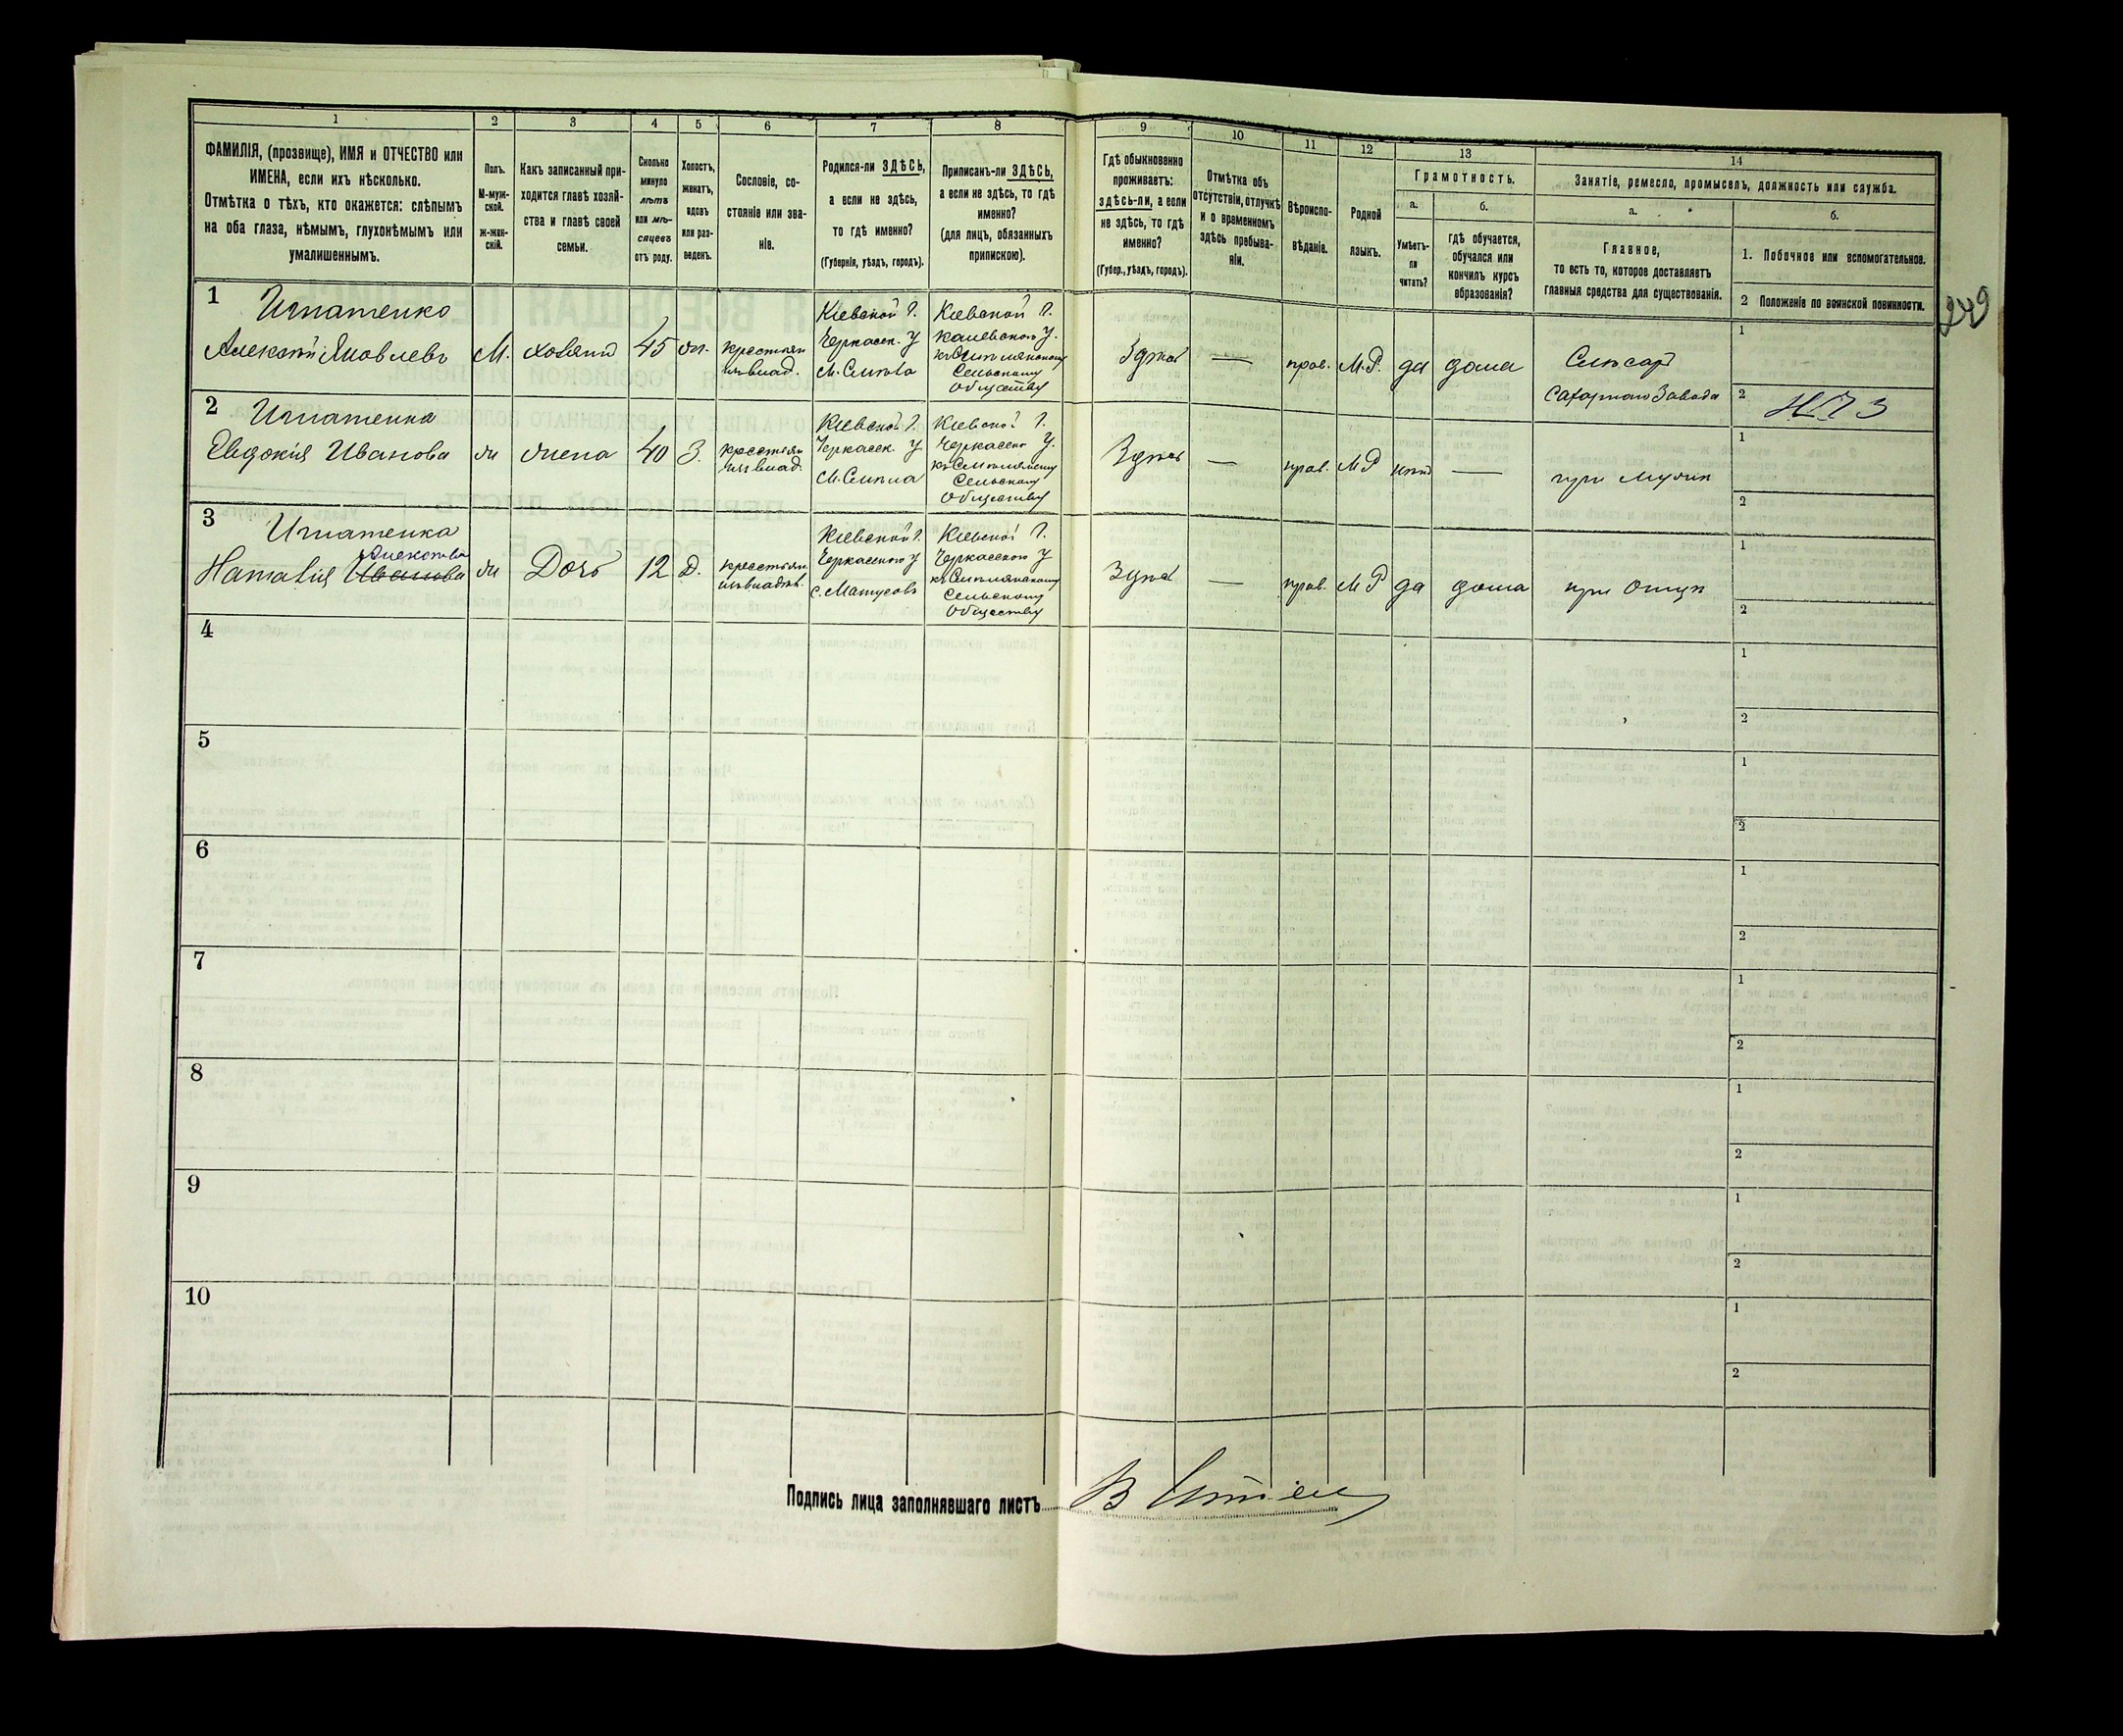 1 2 3 4 5 6 7 8 9 10 11 12 13 14
ФАМИЛІЯ, (прозвище), ИМЯ и ОТЧЕСТВО или
ИМЕНА, если ихъ нѣсколько.
Отмѣтка о тѣхъ, кто окажется: слѣпымъ
на оба глаза, нѣмымъ, глухонѣмымъ или
умалишеннымъ.
Полъ.
М-муж-
ской.
ж-жен-
скій.
Какъ записанный при-
ходится главѣ хозяй-
ства и главѣ своей
семьи.
Сколько
минуло
лѣтъ
или мѣ-
сяцевъ
отъ роду.
Холостъ,
женатъ,
вдовъ
или раз-
веденъ.
Сословіе, со-
стояніе или зва-
ніе.
Родился-ли ЗДѢСЬ,
а если не здѣсь,
то гдѣ именно?
(Губернія, уѣздъ, городъ).
Приписанъ-ли ЗДѢСЬ,
а если не здѣсь, то гдѣ
именно?
(для лицъ, обязанныхъ
припискою).
Гдѣ обыкновенно
проживаетъ:
здѣсь-ли, а если
не здѣсь, то гдѣ
именно?
(Губер., уѣздъ, городъ).
Отмѣтка объ
отсутствіи, отлучкѣ
и о временномъ
здѣсь пребыва-
ніи.
Вѣроиспо-
вѣданіе.
Родной
языкъ.
Грамотность.
а.
Умѣетъ-
ли
читать?
б.
гдѣ обучается,
обучался или
кончилъ курсъ
образованія?
Занятіе, ремесло, промыселъ, должность или служба.
а.
Главное,
то есть то, которое доставляетъ
главныя средства для существованія.
б.
1. Побочное или вспомогательное.
2 Положеніе по воинской повинности.
249
1 Игнатенко
Алексѣй Яковлевъ
М.
хозяинъ
45
ж.
крестьян
изъ влад.
Кіевской Г.
Черкасск. У
М. Смѣла
Кіевской Г.
Каневскаго У.
къ
Сельскому
Обществу
Здѣсь
—
прав.
М.Р.
да
дома
Слесарь
Сахарнаго Завода
1
2
2 Игнатенко
Евдокія Иванова
ж
жена
40
З.
крестьян
изъ влад.
Кіевской Г.
Черкасск. У
М. Смѣла
Кіевской Г.
Черкасск У.
къ Смѣлянскому
Сельскому
Обществу
Здѣсь
—
прав.
М Р
нѣтъ
—
при мужѣ
1
2
3 Игнатенко
Алексѣева
Наталія Иванова
ж
Дочь
12
Д.
крестьян.
изъ владѣл.
Кіевской Г.
Черкасскаго У
с. Матусовъ
Кіевской Г.
Черкасскаго У
къ Смѣлянскому
Сельскому
Обществу
Здѣсь
—
прав.
М Р
да
дома
при Отцѣ
1
2
4
1
2
5
1
2
6
1
2
7
1
2
8
1
2
9
1
2
10
1
2
Подпись лица заполнявшаго листъ